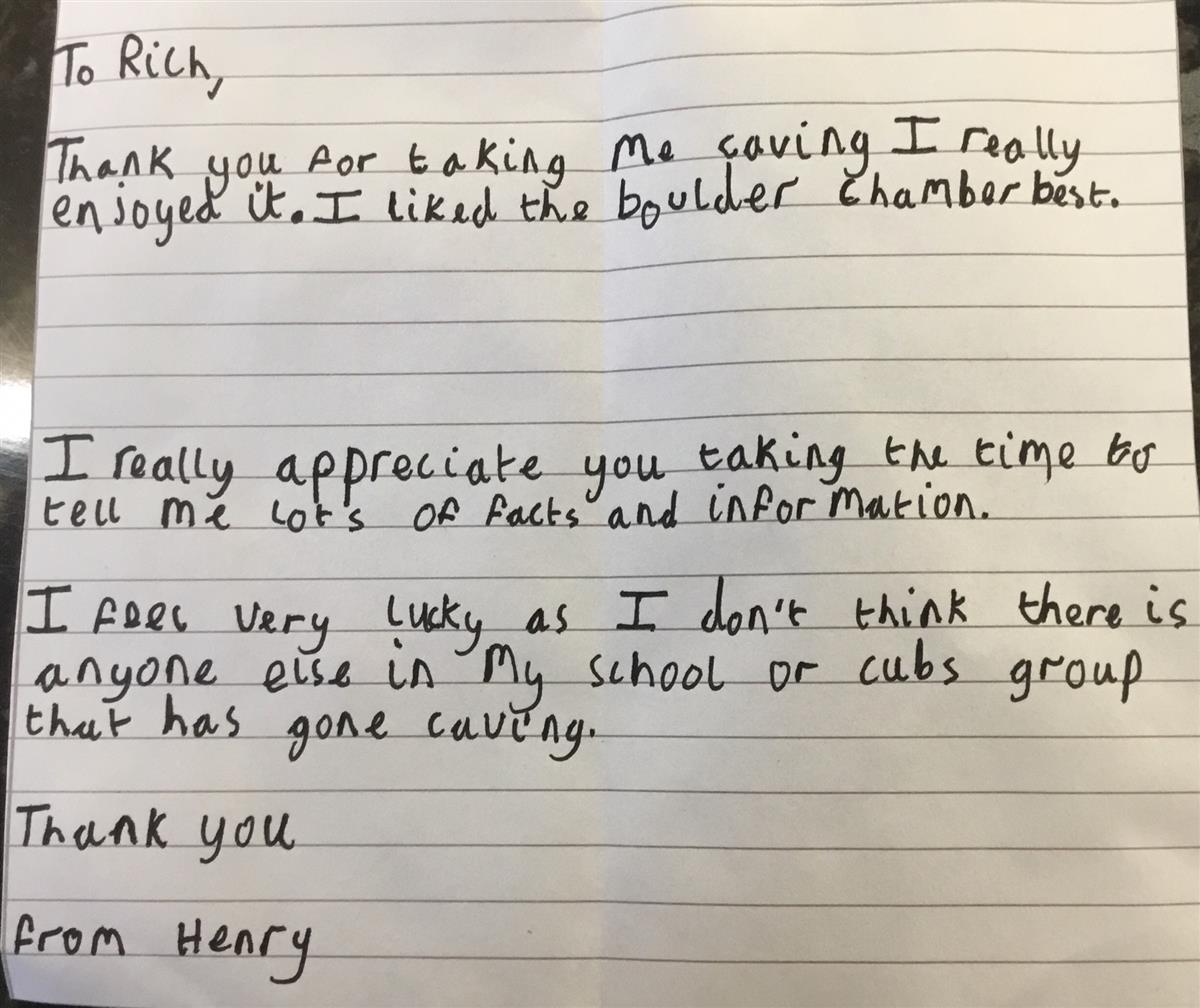 To Rich,
Thank you for taking me caving I really
enjoyed it. I liked the boulder chamber best.
I really appreciate you taking the time to
tell me lots of facts and information.
I feel very lucky as I don't think there is
anyone else in my school or cubs group
that has gone caving.
Thank you
from Henry